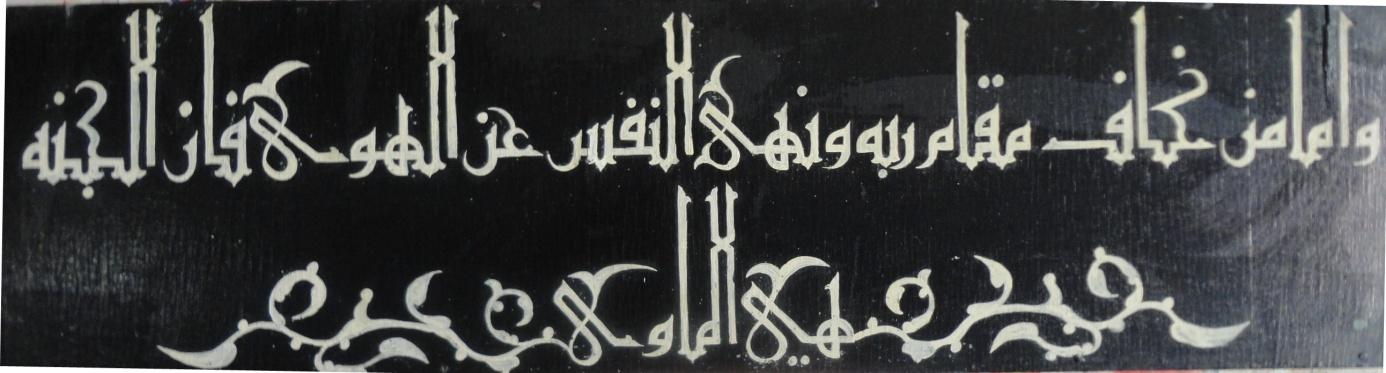 واما من خاف مقام ربه ونهى النفس عن الهوى فان الجنه
هي الماوى